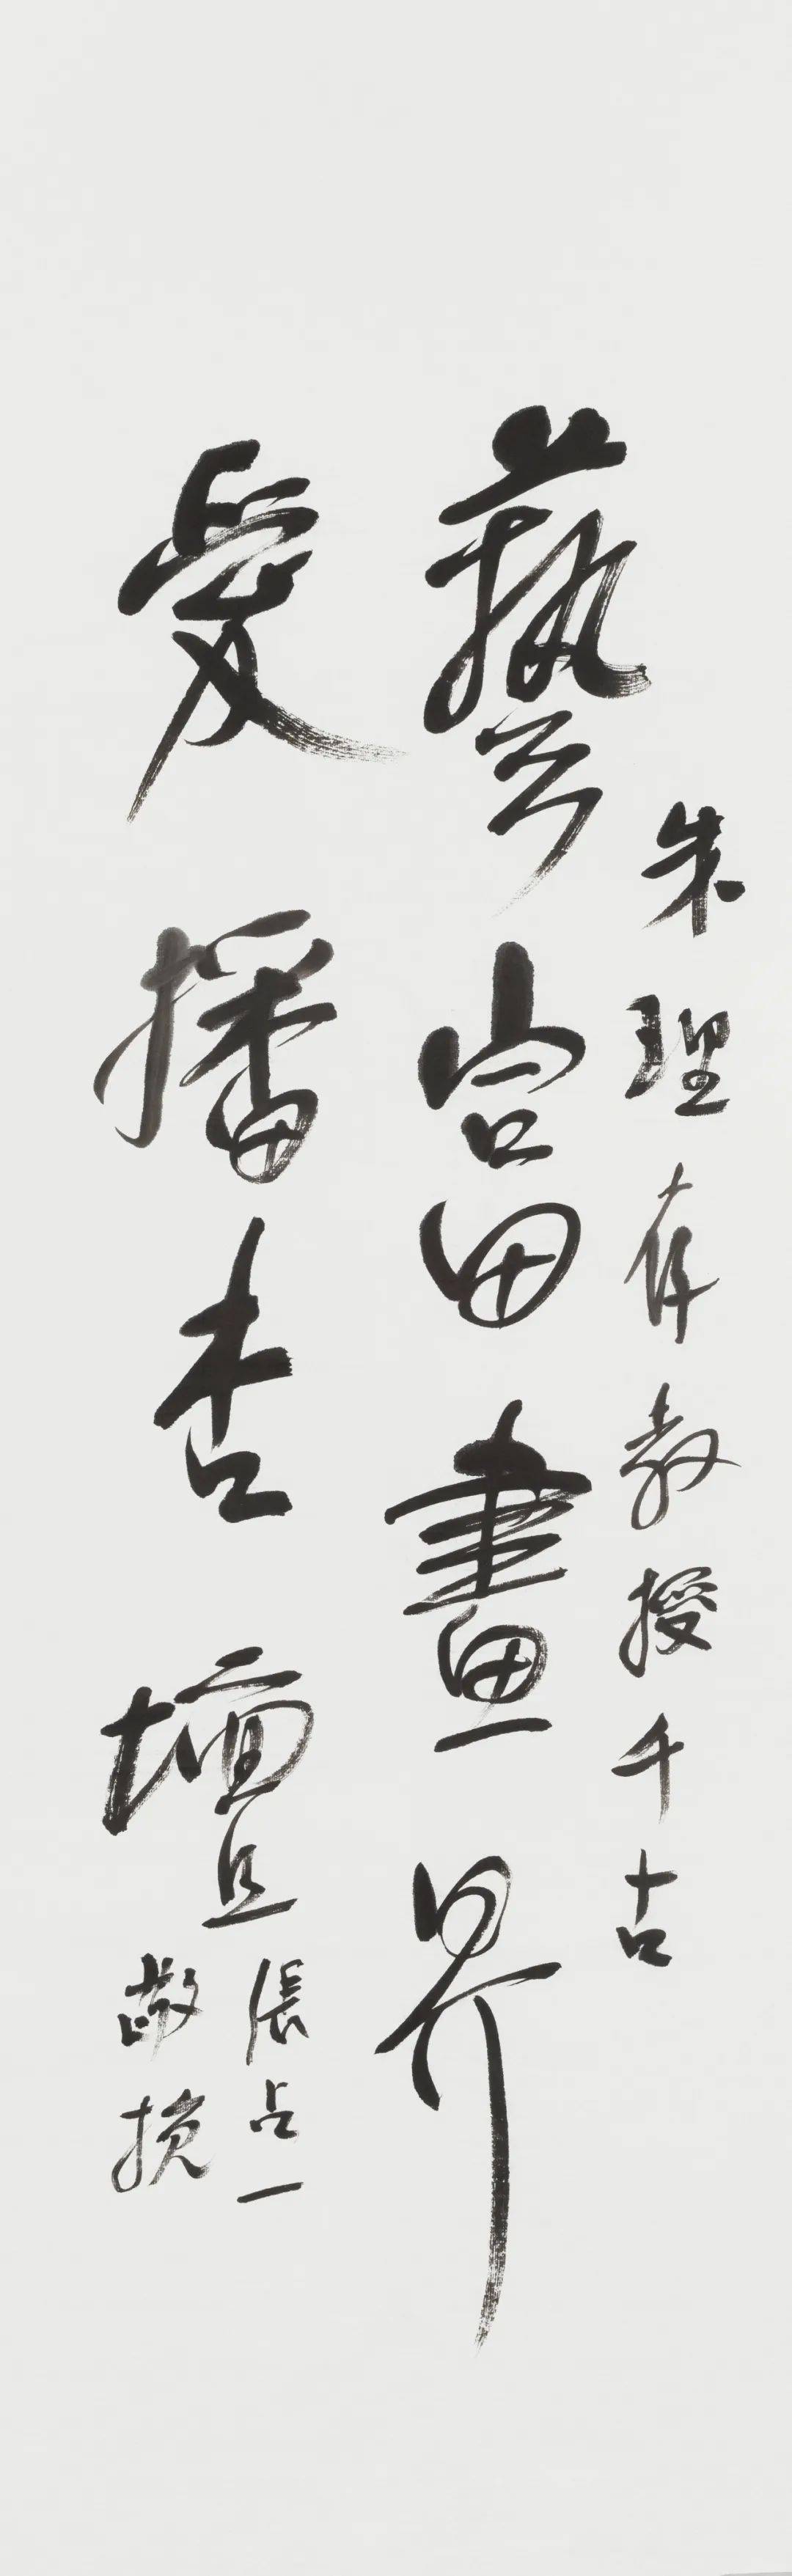 朱理存教授千古
藝富畫界
愛播杏壇
張占一
敬挽